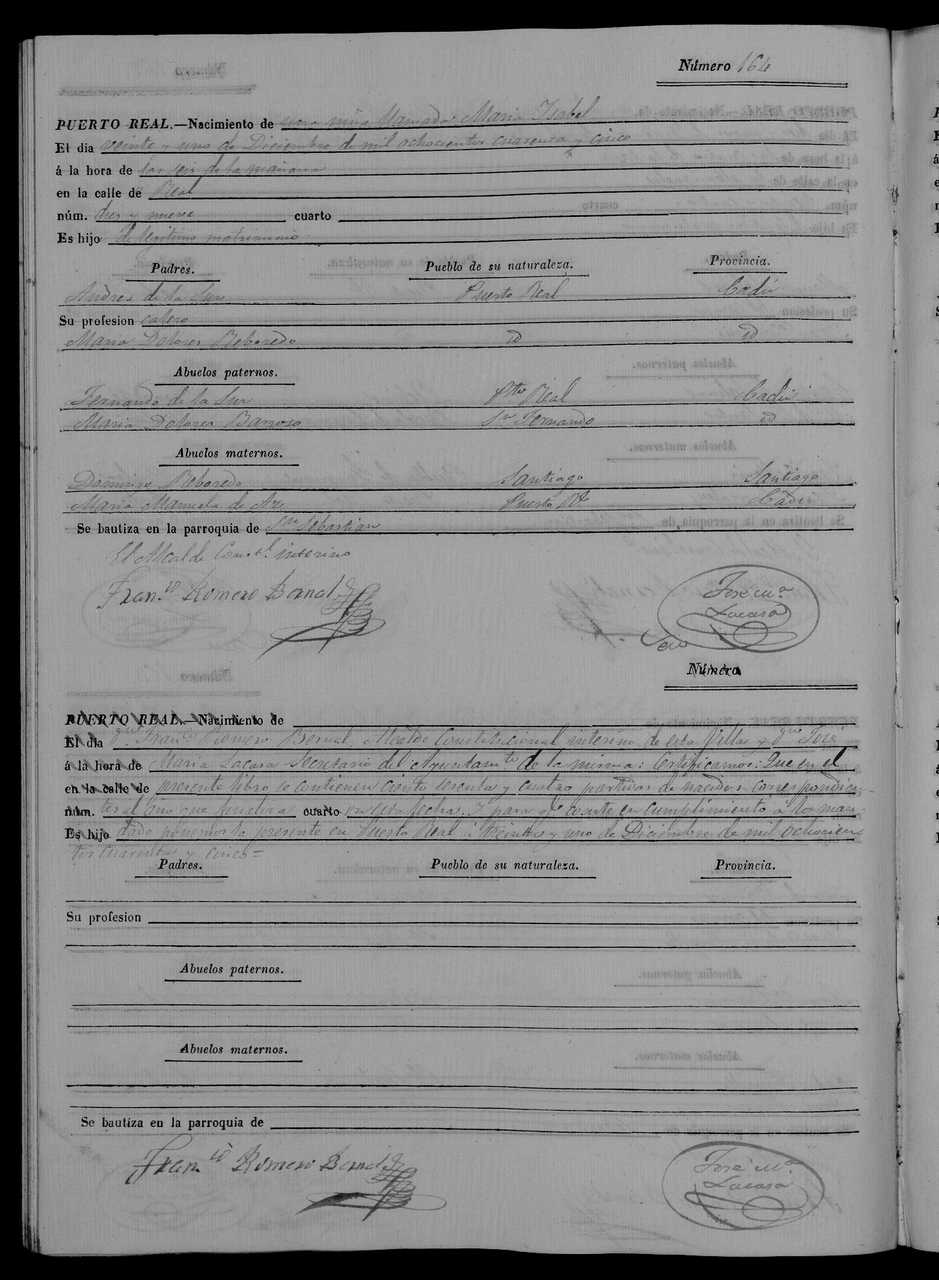 Número 164
PUERTO REAL.—Nacimiento de una niña llamada Maria Isabel
El dia veinte y uno de Diciembre de mil ochocientos cuarenta y cinco
á la hora de las seis de la mañana
en la calle de Real
núm. diez y nueve cuarto
Es hijo de lexitimo matrimonio
Padres. Pueblo de su naturaleza. Provincia.
Andres de la Puerto Real Cadiz
Su profesion
Maria Dolores Reboredo id id
Abuelos paternos.
Fernando de la Pto Real Cadiz
Maria Dolores Barroso Sn Fernando id
Abuelos maternos.
Domingo Reboredo Santiago Santiago
Maria Manuela de Puerto Rl Cadiz
Se bautiza en la parroquia de Sn Sebastian
El Alcalde Constl. interino
Franco Romero Bernal
José Ma.
Lacasa
Srio
Número
PUERTO REAL.—Nacimiento de
El dia Dn Franco Romero Bernal Alcalde Constitucional interino de esta Villa y Dn José
á la hora de Maria Lacasa Secretario del Ayuntamto de la misma: Certificamos: Que en el
en la calle de presente libro se contienen ciento sesenta y cuatro partidas de nacidos correspondien
núm. tes al año que cuarto en esta fecha. Y para qe conste en cumplimiento a lo man
Es hijo dado ponemos la presente en Puerto Real a treinta y uno de Diciembre de mil ochocien
tos cuarenta y cinco=
Padres. Pueblo de su naturaleza. Provincia.
Su profesion
Abuelos paternos.
Abuelos maternos.
Se bautiza en la parroquia de
Franco Romero Bernal
José Ma.
Lacasa